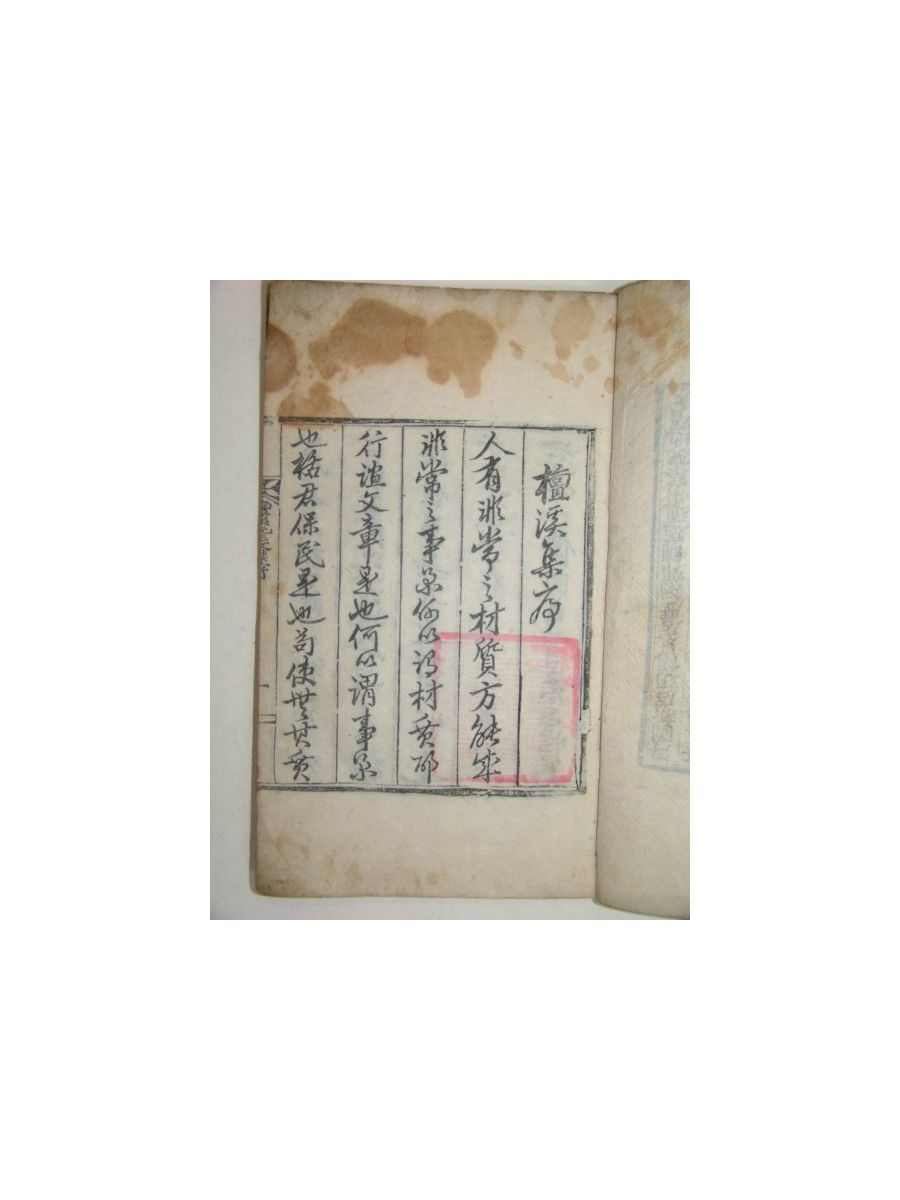 檀溪集序
人有非常之材質方能成
非常之事業何以謂材質耶
行誼文章是也何以謂事業
也格君保民是也苟使無其質